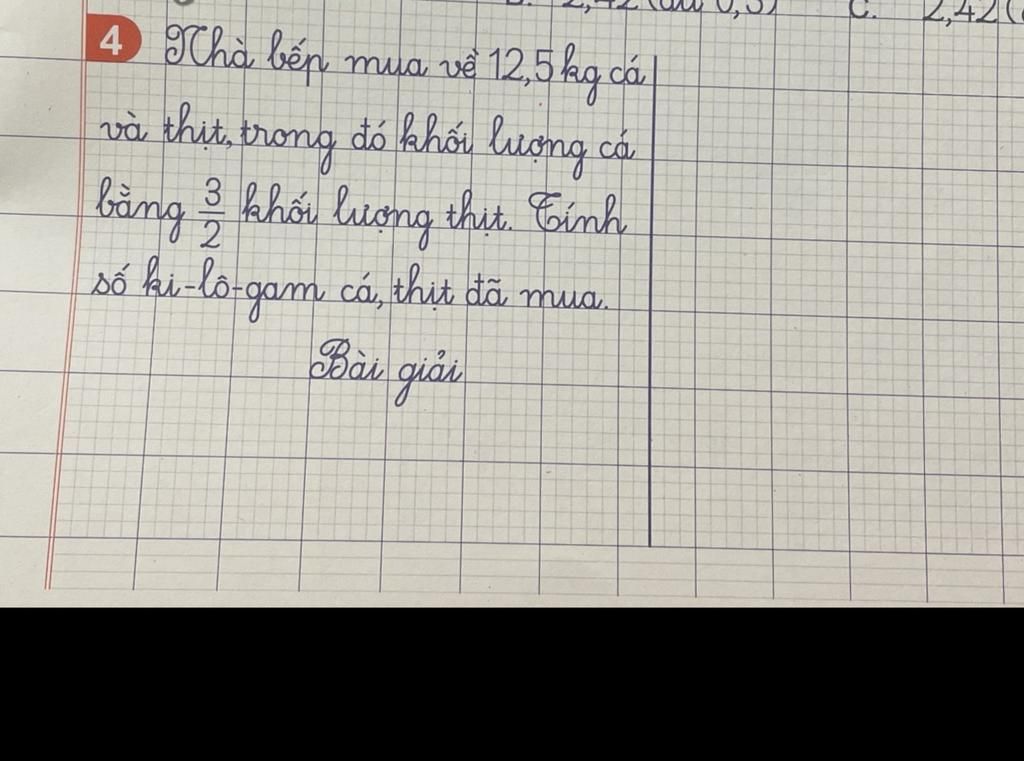 2,42 (dư 0,3) C. 2,42 (
4 Nhà bếp mua về 12,5 kg cá
và thịt, trong đó khối lượng cá
bằng 3/2 khối lượng thịt. Tính
số ki-lô-gam cá, thịt đã mua.
Bài giải